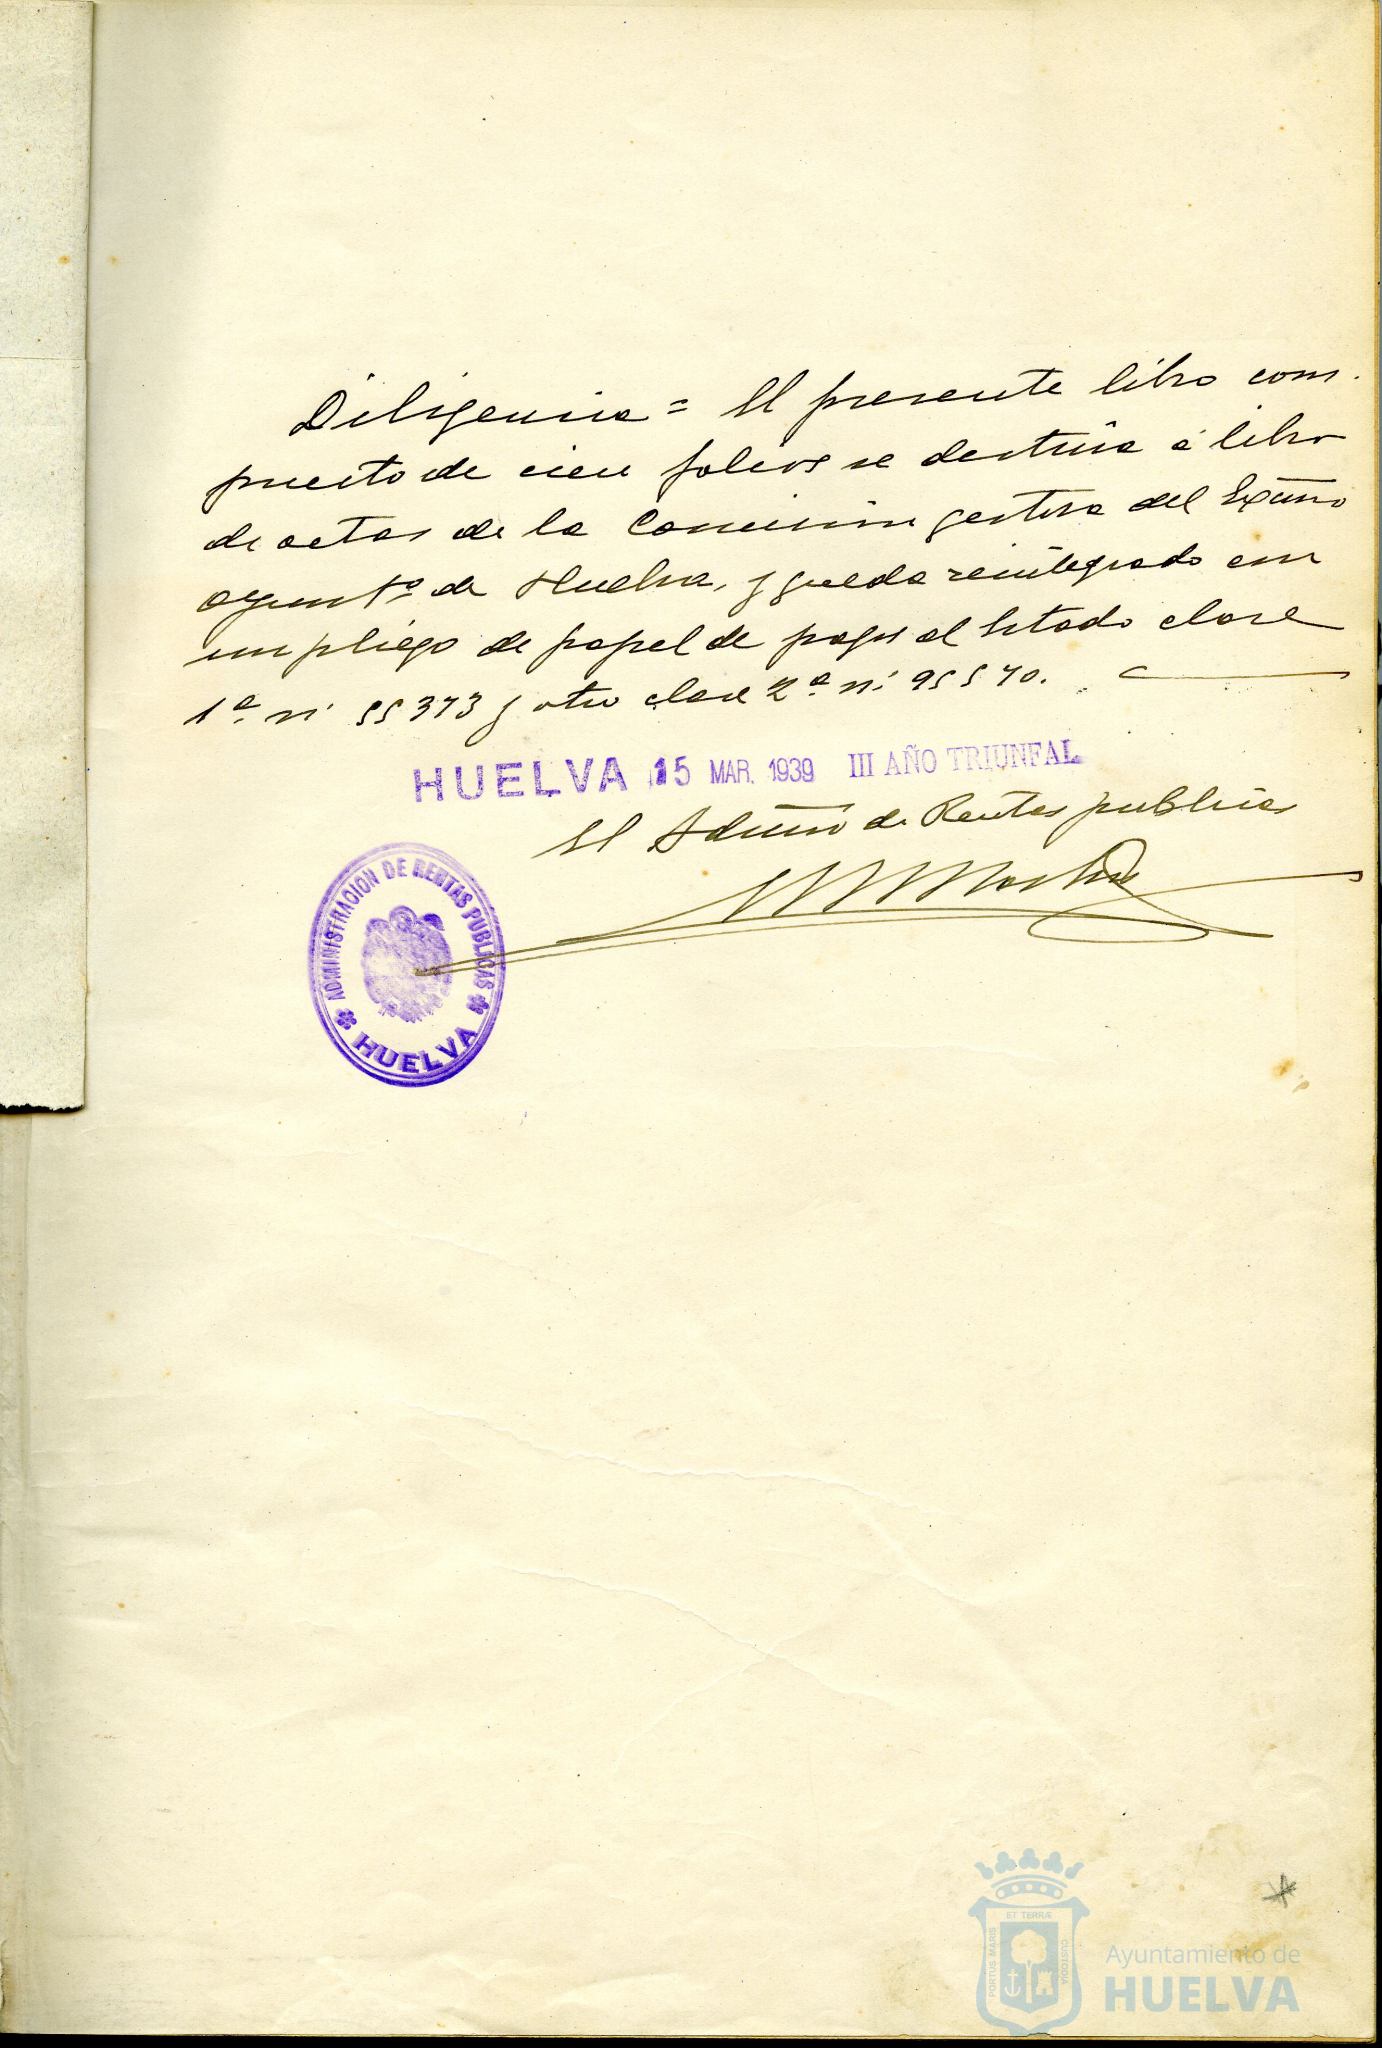 Diligencia = El presente libro com-
puesto de cien folios se destina á libro
de actas de la Comisión gestora del Excmo
Ayuntº de Huelva, y queda reintegrado con
un pliego de papel de pagos al Estado clase
1ª nº 55373 y otro clase 2ª nº 95570.
HUELVA 15 MAR. 1939 III AÑO TRIUNFAL
El Admor de Rentas publicas
ADMINISTRACION DE RENTAS PUBLICAS
HUELVA
ET TERRÆ
PORTUS MARIS
CUSTODIA
Ayuntamiento de
HUELVA